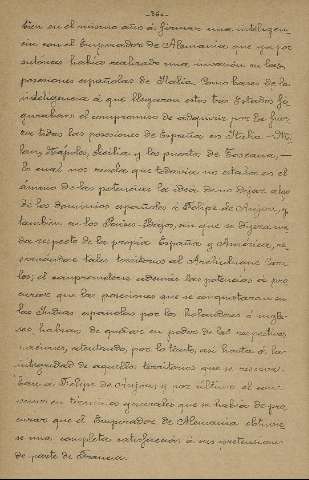 -36-
bien en el mismo año á firmar una inteligen-
cia con el Emperador de Alemania que ya por
entonces había realizado una invasión en las
posesiones españolas de Italia. Como base de la
inteligencia á que llegaron estos tres Estados fi-
guraban el compromiso de adquirir por la fuer-
za todas las posesiones de España en Italia -Mi-
lan, Nápoles, Sicilia y los puertos de Toscana,-
lo cual nos revela que todavía no estaba en el
ánimo de las potencias la idea de no dejar algo
de los dominios españoles á Felipe de Anjou, y
también en los Países-Bajos, sin que se dijera na-
da respecto de la propia España y América, re-
servándose tales territorios al Archiduque Car-
los; el comprometerse además las potencias á pro-
curar que las posesiones que se conquistaran en
las Indias españolas por los holandeses é ingle-
ses habían de quedar en poder de los respectivos
países, atentando, por lo tanto, así hasta á la
integridad de aquellos territorios que se reserva-
ban á Felipe de Anjou, y por último el con-
signarse en términos generales que se había de pro-
curar que el Emperador de Alemania obtuvie-
se una completa satisfacción á sus pretensiones
de parte de Francia.